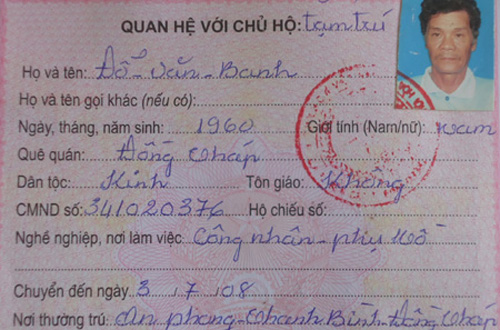 QUAN HỆ VỚI CHỦ HỘ: tạm trú
Họ và tên: Đỗ - Văn - Banh
Họ và tên gọi khác (nếu có):
Ngày, tháng, năm sinh: 1960 Giới tính (Nam/nữ): nam
Quê quán: Đồng Tháp
Dân tộc: Kinh Tôn giáo: Không
CMND số: 341020376 Hộ chiếu số:
Nghề nghiệp, nơi làm việc: Công nhân - phụ hồ
Chuyển đến ngày 3 / 7 / 08
Nơi thường trú: An phong - Thanh Bình - Đồng Tháp